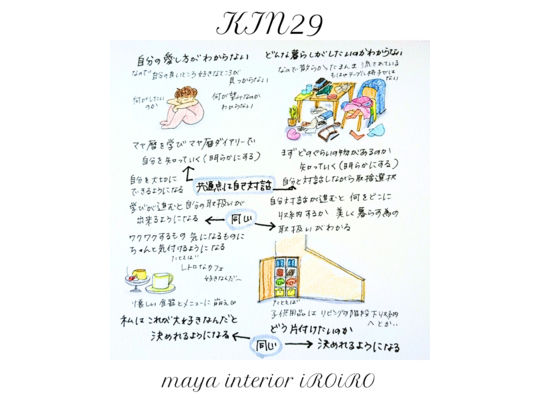 KIN29
自分の愛し方がわからない
なので 自分の良いところ 好きなところが
見つからない
何がしたい
のか
何が
わからない
マヤ暦を学び マヤ暦ダイアリーで
自分を知っていく(明らかにする)
自分を大切に
できるようになる
学びが進むと自分の取扱いが
出来るようになる
ワクワクするもの 気になるものに
ちゃんと気付けるようになる
たとえば
レトロなカフェ
好きなんだ〜
食器とメニューに萌え
私はこれが大好きなんだと
決めれるようになる
どんな暮らしがしたいのかわからない
なので散らかったまんま
まずどのぐらいの物があるのか
知っていく(明らかにする)
自分と対話しながら取捨選択
共通点は自己対話
自分対話が進むと 何をどこに
収納するか 美しく暮らす為の
取扱いがわかる
同じ
たとえば
子供用品は リビングの階段下収納
へとか‥
どう片付けたいのか
決めれるようになる
同じ
maya interior iROiRO